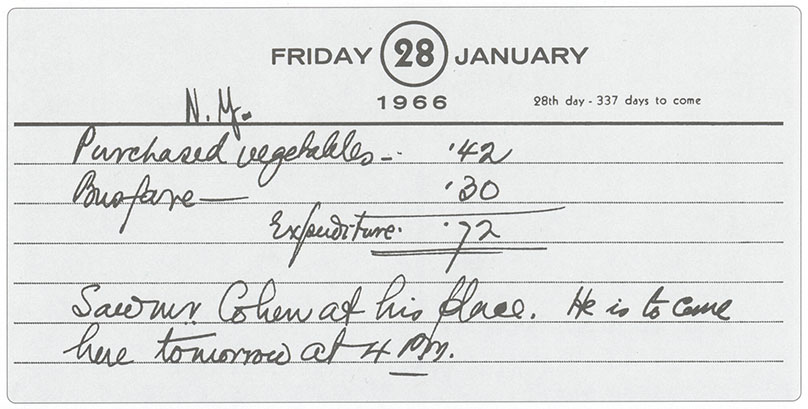 FRIDAY 28 JANUARY
1966
28th day - 337 days to come
N.Y.
Purchased vegetables - .42
Busfare — .30
Expenditure. .72
Saw mr. Cohen at his place. He is to come
here tomorrow at 4 PM.